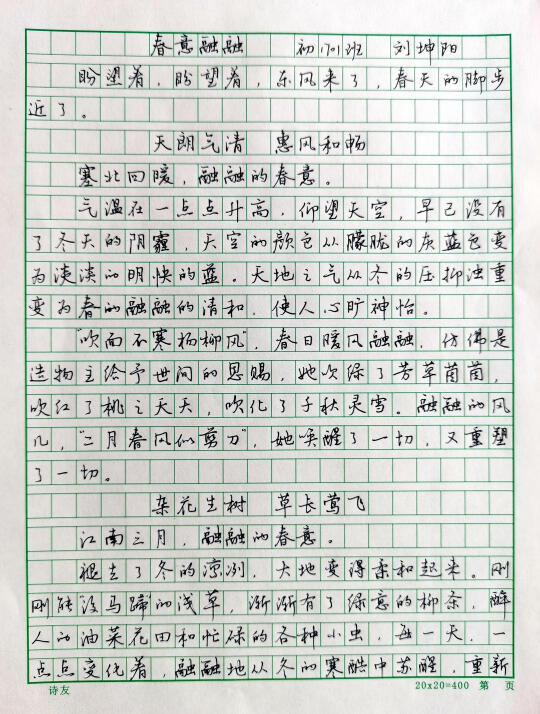 春意融融 初1701班 刘坤阳
盼望着，盼望着，东风来了，春天的脚步
近了。
天朗气清 惠风和畅
塞北回暖，融融的春意。
气温在一点点升高，仰望天空，早已没有
了冬天的阴霾，天空的颜色从朦胧的灰蓝色变
为淡淡的明快的蓝。大地之气从冬的压抑浊重
变为春的融融的清和，使人心旷神怡。
“吹面不寒杨柳风”，春日暖风融融，仿佛是
造物主给予世间的恩赐，她吹绿了芳草茵茵，
吹红了桃之夭夭，吹化了千秋灵雪。融融的风
儿，“二月春风似剪刀”，她唤醒了一切，又重塑
了一切。
杂花生树 草长莺飞
江南三月，融融的春意。
褪去了冬的凛冽，大地变得柔和起来。刚
刚能“没马蹄”的浅草，渐渐有了绿意的柳条，醉
人的油菜花田和忙碌的各种小虫，每一天，一
点点变化着，融融地从冬的寒酷中苏醒，重新
诗友 20x20=400 第 页